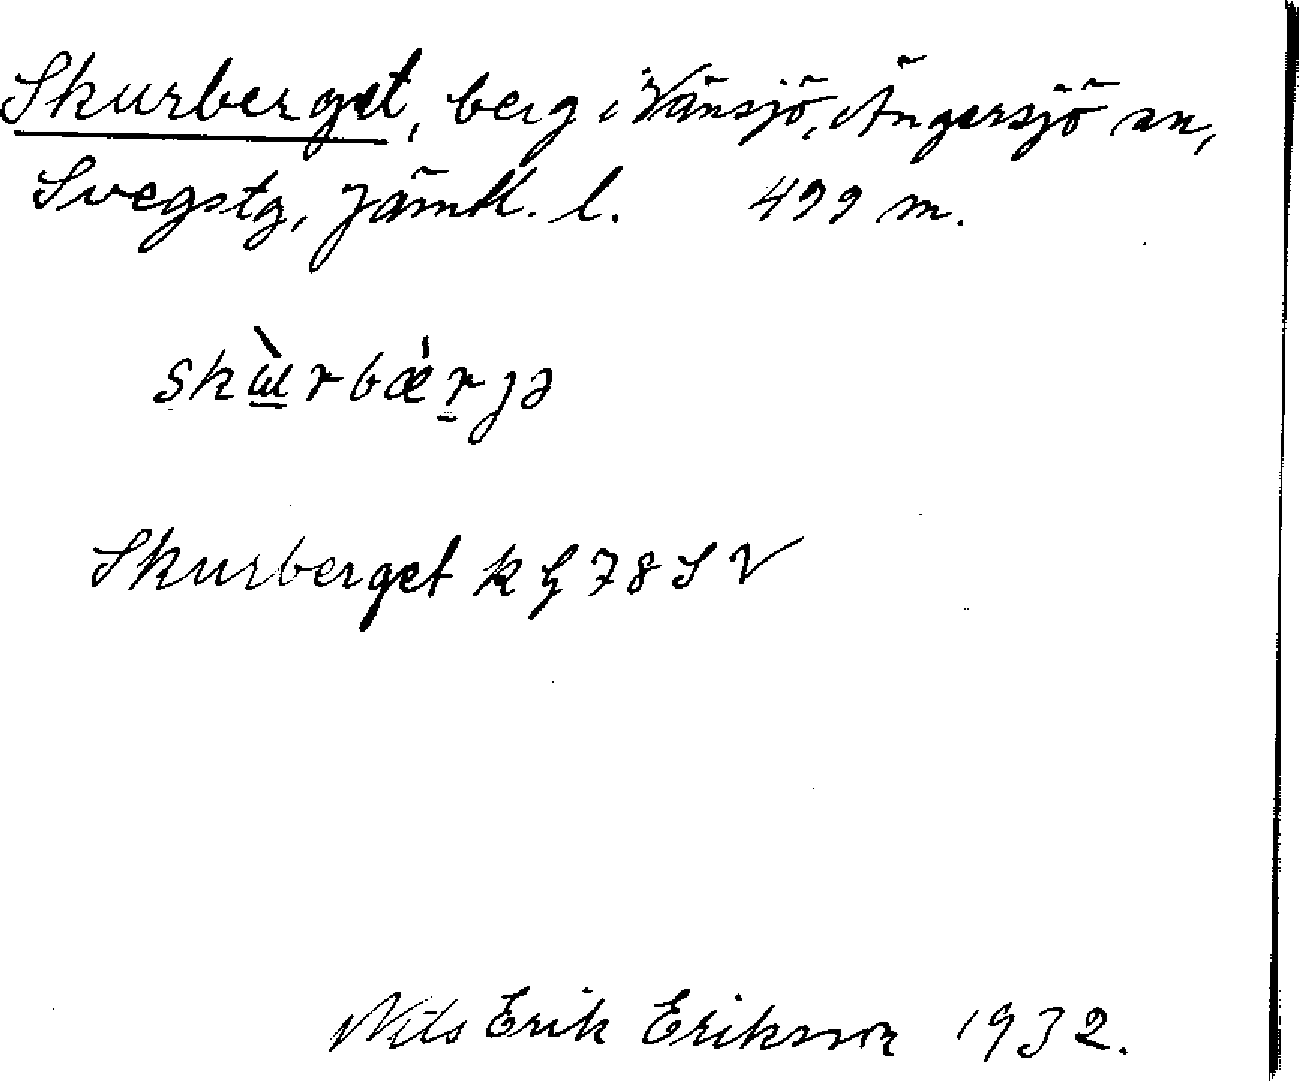 Skurberget, berg i Vänsjö, Ängersjö sn,
Svegstg, Jämtl. l. 499 m.
skɯ̀rbæ̀rjə
Skurberget k G 78 SV
Nils Erik Eriksson 1932.